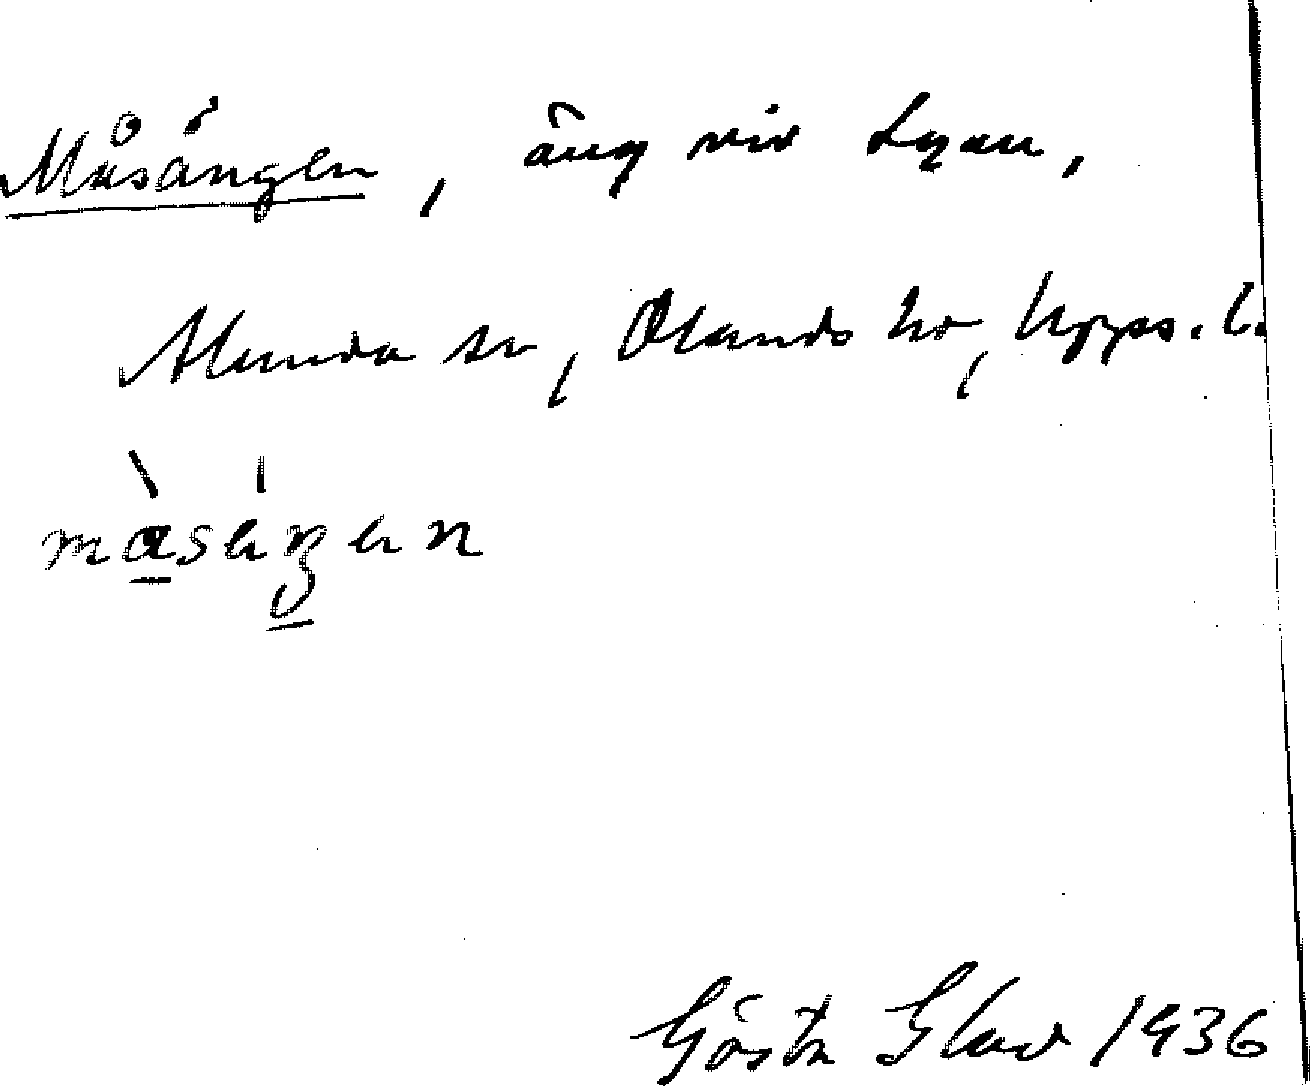 Måsängen, äng vid Lyan,
Alunda sn, Olands hd, Upps. l.
Gösta Glad 1936